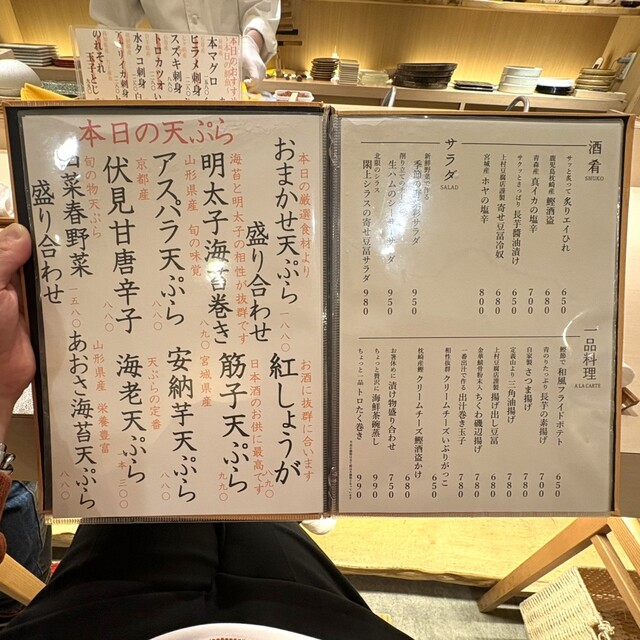 本日の天ぷら
本日の厳選食材より
おまかせ天ぷら
盛り合わせ
一八八〇
海苔と明太子の相性が抜群です
明太子海苔巻き
八九〇
山形県産 旬の味覚
アスパラ天ぷら
八八〇
京都産
伏見甘唐辛子
八八〇
旬の物天ぷら
菜春野菜
盛り合わせ
一五八〇
お酒に抜群に合います
紅しょうが
八九〇
日本酒のお供に最高です
筋子天ぷら
九九〇
宮城県産
安納芋天ぷら
八八〇
天ぷらの定番
海老天ぷら
本 三〇〇
山形県産 栄養豊富
あおさ海苔天ぷら
八八〇
酒肴
SHUKO
サッと炙って 炙りエイひれ
650
鹿児島枕崎産 鰹酒盗
680
青森産 真イカの塩辛
700
サッとさっぱり 長芋醤油漬け
650
上村豆腐店謹製 寄せ豆冨冷奴
680
宮城産 ホヤの塩辛
800
サラダ
SALAD
新鮮野菜で作る
950
生ハムのシーザーサラダ
950
北限のシラス
閖上シラスの寄せ豆冨サラダ
980
一品料理
A LA CARTE
鰹節で 和風フライドポテト
650
青のりたっぷり 長芋の素揚げ
700
自家製 さつま揚げ
780
定義山より 三角油揚げ
780
上村豆腐店謹製 揚げ出し豆冨
700
ちくわ磯辺揚げ
780
一番出汁で作る 出汁巻き玉子
780
相性抜群 クリームチーズいぶりがっこ
680
枕崎産鰹 クリームチーズ鰹酒盗かけ
680
お箸休めに 漬け物盛り合わせ
750
ちょっと贅沢に 海鮮茶碗蒸し
990
ちょっと一品 トロたく巻き
990
本マグロ
ヒラメ刺身
スズキ刺身
トロカツオ
水タコ刺身
のれそれ